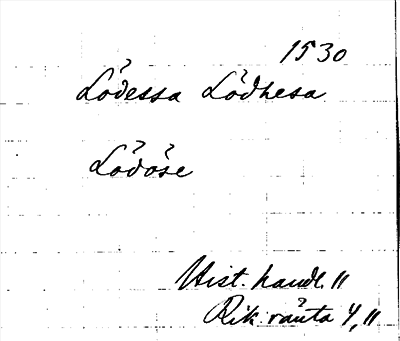 1530
Lödessa Lödhesa
Lödöse
Hist. handl. 11
Rik. ränta 4, 11